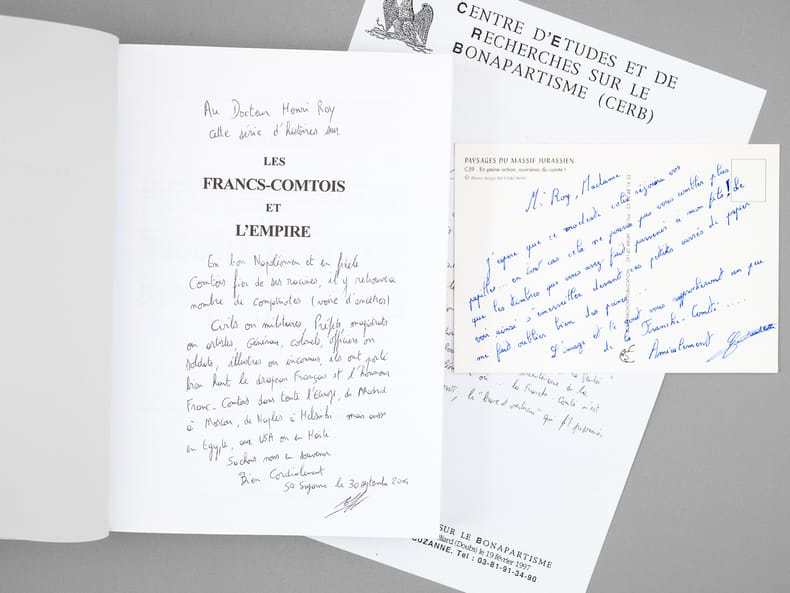 Au Docteur Henri Roy
cette série d'histoires sur
LES
FRANCS-COMTOIS
ET
L'EMPIRE
En bon Napoléonien et en fidèle
Comtois fier de ses racines, il y retrouvera
nombre de compatriotes (voire d'ancêtres)
Civils ou militaires, Préfets, magistrats
ou artistes, Généraux, colonels, officiers ou
soldats, illustres ou inconnus, ils ont porté
bien haut le drapeau Français et l'honneur
Franc-Comtois dans toute l'Europe, de Madrid
à Moscou, de Naples à Helsinki mais aussi
en Egypte, aux USA ou en Haïti
Sachons nous en souvenir
Bien Cordialement
Ste Suzanne le 30 septembre
CENTRE D'ETUDES ET DE
RECHERCHES SUR LE
BONAPARTISME (CERB)
PAYSAGES DU MASSIF JURASSIEN
C59 : En peine action, ouvrières du comté !
© Photo Serge REVERCHON
Mr Roy, Madame
J'espère que ce modeste colis réjouira vos
papilles... en tout cas cela ne pourra pas vous combler plus
que les timbres que vous avez fait parvenir à mon fils ! Le
voir ainsi s'émerveiller devant ces petits carrés de papier
me fait oublier bien des peines...
L'image et le goût vous rapprocheront un peu
de la Franche-Comté....
Amicalement
la Franche-Comté n'est
qui fit
SUR LE BONAPARTISME
(Doubs) le 19 février 1997
UZANNE. Tel : 03-81-91-34-90